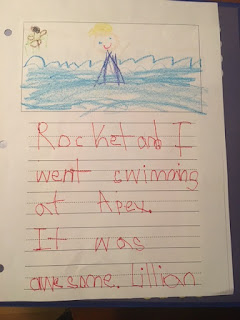 Rocket and I
went swimming
at Apex.
It was
awesome. Lillian